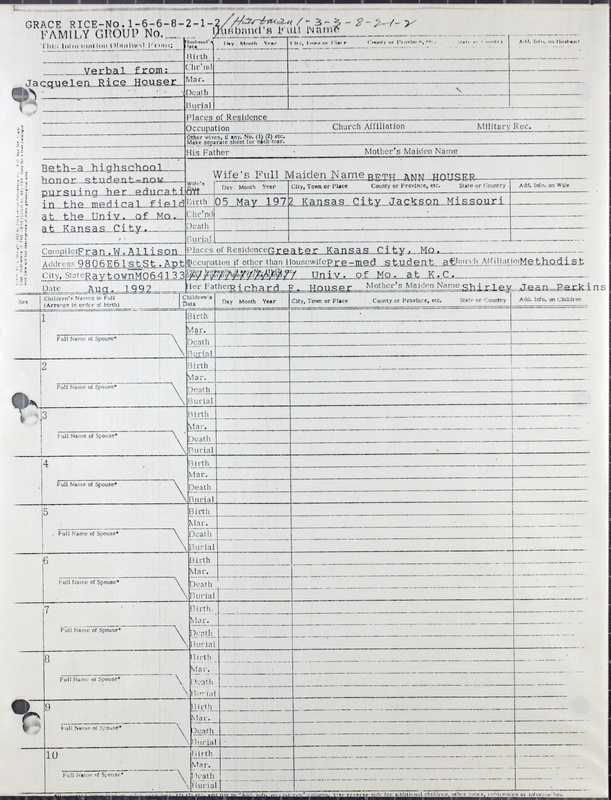 GRACE RICE-No.1-6-6-8-2-1-2/Hartman 1-3-3-8-2-1-2
FAMILY GROUP No. Husband's Full Name
This Information Obtained From:
Husband's Data Day Month Year City, Town or Place County or Province, etc. State or Country Add. Info. on Husband
Birth
Verbal from:
Chr'nd
Jacquelen Rice Houser
Mar.
Death
Burial
Places of Residence
Occupation Church Affiliation Military Rec.
Other wives, if any. No. (1) (2) etc.
Make separate sheet for each mar.
His Father Mother's Maiden Name
Beth-a highschool
honor student-now
pursuing her education
in the medical field
at the Univ. of Mo.
at Kansas City.
Wife's Full Maiden Name BETH ANN HOUSER
Wife's Day Month Year City, Town or Place County or Province, etc. State or Country Add. Info. on Wife
Birth 05 May 1972 Kansas City Jackson Missouri
Chr'nd
Death
Burial
Compiler Fran.W.Allison Places of Residence Greater Kansas City, Mo.
Address 9806E61stSt.Apt Occupation if other than Housewife Pre-med student at Church Affiliation Methodist
City, State RaytownMO64133 Univ. of Mo. at K.C.
Date Aug. 1992 Her Father Richard F. Houser Mother's Maiden Name Shirley Jean Perkins
Sex Children's Names in Full
(Arrange in order of birth)
Children's Data Day Month Year City, Town or Place County or Province, etc. State or Country Add. Info. on Children
1 Birth
Mar.
Full Name of Spouse* Death
Burial
2 Birth
Mar.
Full Name of Spouse* Death
Burial
3 Birth
Mar.
Full Name of Spouse* Death
Burial
4 Birth
Mar.
Full Name of Spouse* Death
Burial
5 Birth
Mar.
Full Name of Spouse* Death
Burial
6 Birth
Mar.
Full Name of Spouse* Death
Burial
7 Birth
Mar.
Full Name of Spouse* Death
Burial
8 Birth
Mar.
Full Name of Spouse* Death
Burial
9 Birth
Mar.
Full Name of Spouse* Death
Burial
10 Birth
Mar.
Full Name of Spouse* Death
Burial